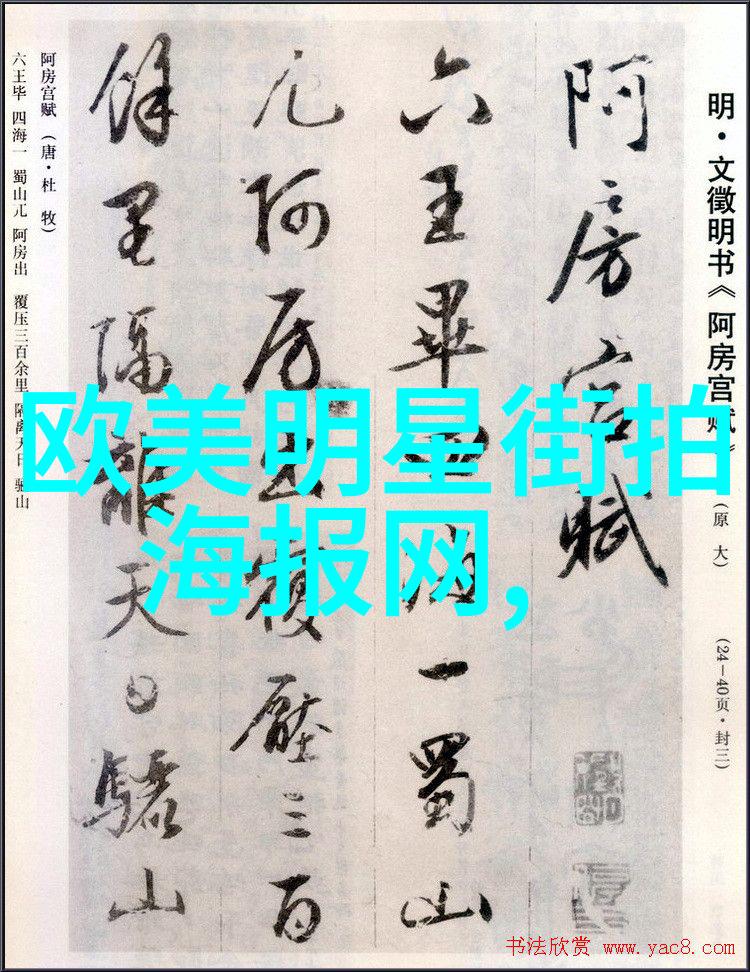 明·文徵明书《阿房宫赋》(原大) (24—40页·封三)
阿房宫賦
六王畢四海一蜀山
兀阿房出覆壓三百
餘里隔離天日驪山
阿房宫赋(唐·杜 牧)
六王毕 四海一 蜀山兀 阿房出 覆压三百余里 隔离天日 骊山
欧美明星街拍
海报网,
书法欣赏 www.yac8.com